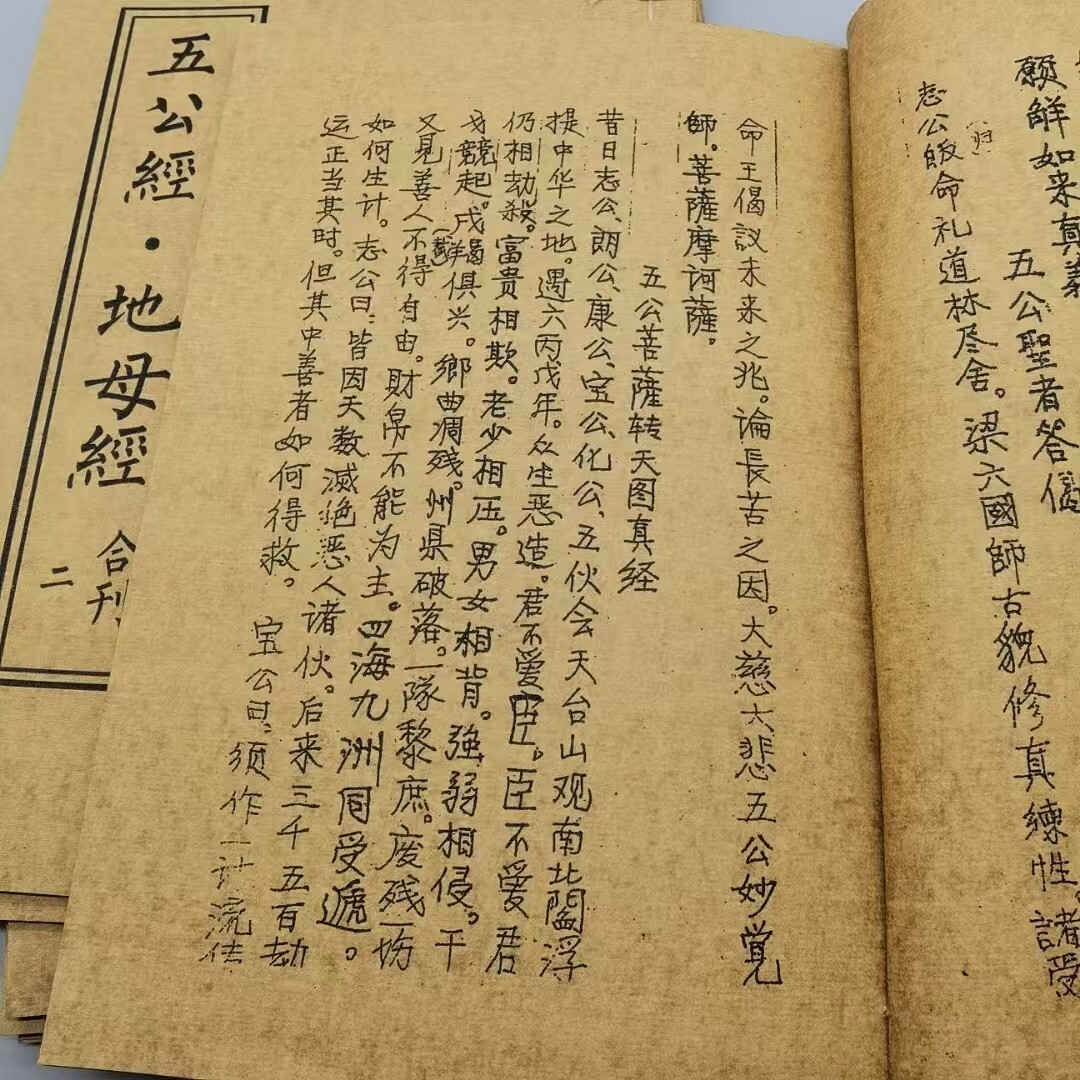 願解如来真義
五公聖者答偈
志公皈(归)命礼道林尽舍。梁六國師古貌修真練性。諸受
命王偈議未来之兆。論長苦之因。大慈大悲五公妙覚
師。菩薩摩诃薩。
五公菩薩转天图真经
昔日志公、朗公、康公、宝公、化公、五伙会天台山观南北閻浮
提中华之地。遇六丙戊年。众生恶造。君不爱臣。臣不爱君
仍相劫殺。富贵相欺。老少相压。男女相背。強弱相侵。干
戈競起。戌羯俱兴。鄉曲凋残。州県破落。一隊黎庶。废残一场
又見善人不得自由。財帛不能为主。四海九洲同受遞。
如何生计。志公曰：皆因天数滅绝恶人诸伙。后来三千五百劫
运正当其时。但其中善者如何得救。 宝公曰：须作一计流传
五公經·地母經
合刊
二